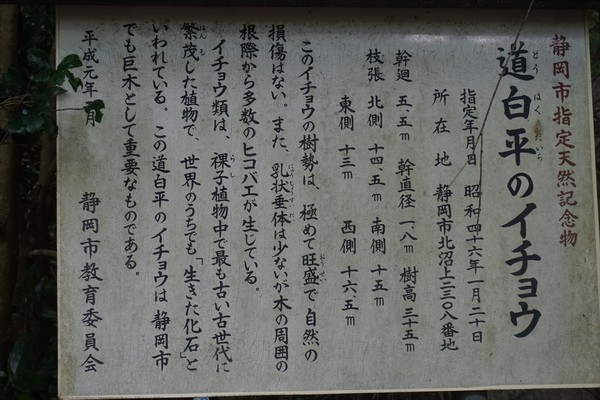 静岡市指定天然記念物
道白平のイチョウ
どう はく だいら
指定年月日 昭和四十六年一月二十日
所在地 静岡市北沼上二三〇八番地
幹廻 五.五m 幹直径 一.八m 樹高 三十五m
枝張 北側 十四.五m 南側 十五m
東側 十三m 西側 十六.五m
このイチョウの樹勢は、極めて旺盛で自然の
損傷はない。また、乳状垂体は少ないが木の周囲の
根際から多数のヒコバエが生じている。
イチョウ類は、裸子植物中で最も古い古世代に
繁茂した植物で、世界のうちでも「生きた化石」と
いわれている。この道白平のイチョウは静岡市
でも巨木として重要なものである。
平成元年 月
静岡市教育委員会